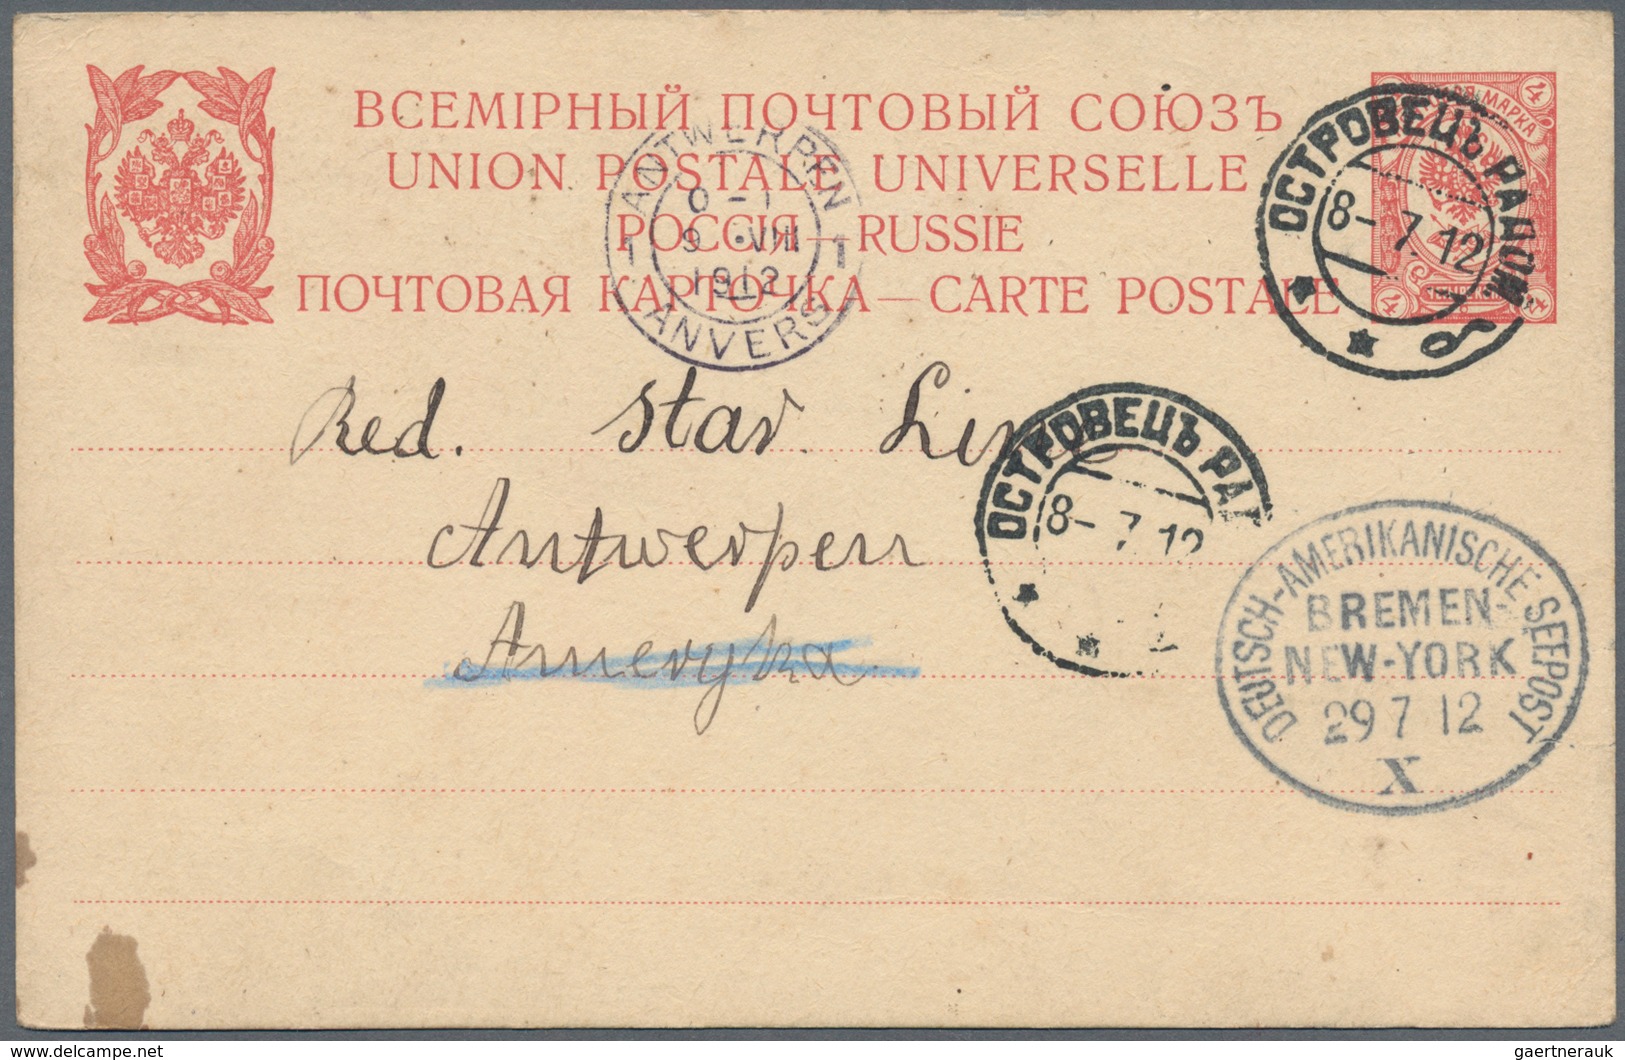 ВСЕМІРНЫЙ ПОЧТОВЫЙ СОЮЗЪ
UNION POSTALE UNIVERSELLE
РОССІЯ—RUSSIE
ПОЧТОВАЯ КАРТОЧКА—CARTE POSTALE
МАРКА
4 4
4
ОСТРОВЕЦЪ РАДОМ.
8- 7 12
б
ANTWERPEN
0-1
1 9 ·VIII 1
1912
ANVERS
Red. Star Line
Antwerpen
Ameryka
ОСТРОВЕЦЪ РА
8- 7 12
DEUTSCH-AMERIKANISCHE SEEPOST
BREMEN-
NEW-YORK
29 7 12
X
gaertnerauk